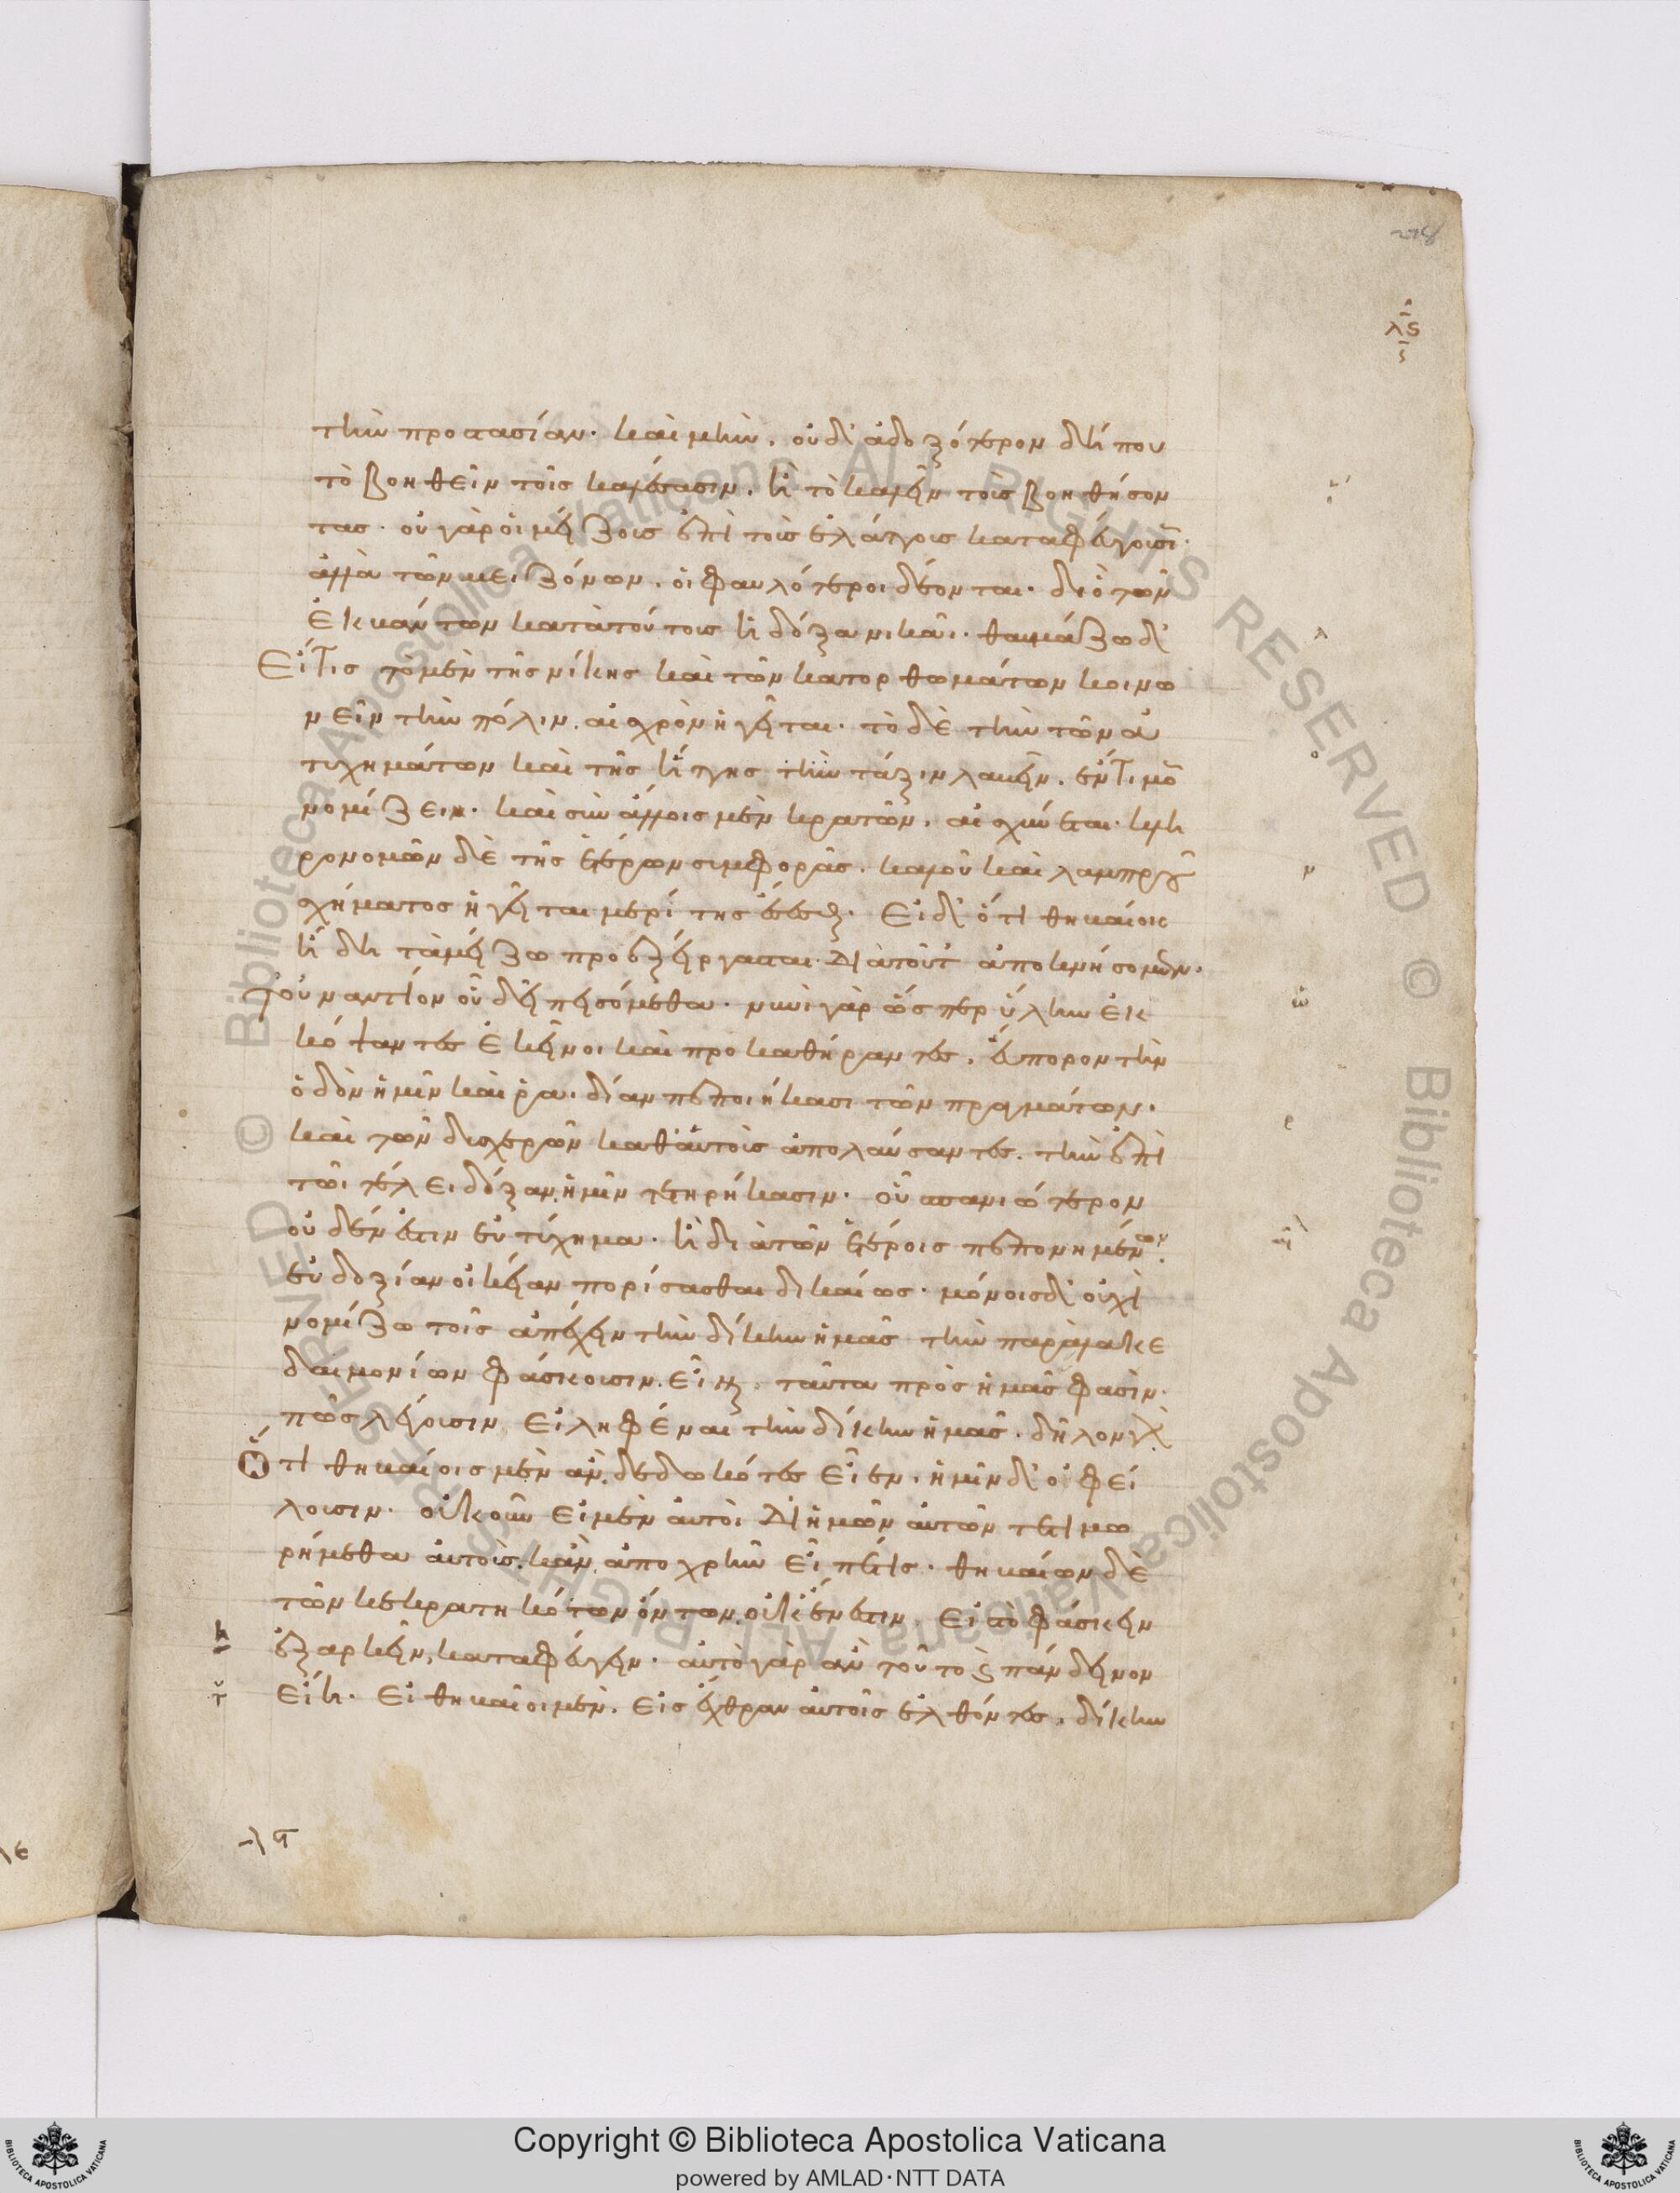 τὴν προστασίαν. καὶ μὴν. οὐδ' ἀδοξότερον δήπου
τὸ βοηθεῖν τοῖς καλέσασιν. ἢ τὸ καλεῖν τοὺς βοηθήσον
τας. οὐ γὰρ οἱ μείζους ἐπὶ τοὺς ἐλάττους καταφεύγουσι.
ἀλλὰ τῶν μειζόνων. οἱ φαυλότεροι δέονται. διὸ τῶν
ἐκκαν των κατὰ τούτους ἡ δόξα νικᾶι. θαυμάζω δ'
εἴ τις τὸ μὲν τῆς νίκης καὶ τῶν κατορθωμάτων κοινω
νεῖν τὴν πόλιν. αἰσχρὸν ἡγεῖται. τὸ δὲ τὴν τῶν ἀ
τυχημάτων καὶ τῆς ἥττης τὴν τάξιν λαχεῖν. ἔντιμον
νομίζειν. καὶ σὺν ἄλλοις μὲν κρατῶν. αἰσχύνεται. κλη
ρονομῶν δὲ τῆς ἑτέρων συμφορᾶς. καλοῦ καὶ λαμπροῦ
σχήματος ἡγεῖται μερίτης ἔσεσθαι. εἰ δ' ὅτι θηβαίοις
ἤδη τὰ μείζω προεξείργασται. διὰ τοῦτ' ἀποκνήσομεν.
τοὐναντίον οὗ δεῖ πεισόμεθα. νυνὶ γὰρ ὥσπερ ὕλην ἐκ
κόψαντες ἐκεῖνοι καὶ προκαθήραντες. εὔπορον τὴν
ὁδὸν ἡμῖν καὶ ῥαιδίαν πεποιήκασι τῶν πραγμάτων.
καὶ τῶν δυσχερῶν καθ' αὑτοὺς ἀπολαύσαντες. τὴν ἐπὶ
τῶι τέλει δόξαν ἡμῖν τετηρήκασιν. οὗ σπανιώτερον
οὐδέν ἐστιν εὐτύχημα. ἢ διὰ τῶν ἑτέροις πεπονημένων.
εὐδοξίαν οἰκείαν πορίσασθαι δικαίως. μόνοις δ' οὐχὶ
νομίζω τοῖς ἀπέχειν τὴν δίκην ἡμᾶς τὴν παρὰ λακε
δαιμονίων φάσκουσιν. εἰ καὶ ταῦτα πρὸς ἡμᾶς φασὶν.
πῶς λέγουσιν εἰληφέναι τὴν δίκην ἡμᾶς. δηλονότι
ὅτι θηβαίοις μὲν ἂν δεδωκότες εἶεν. ἡμῖν δ' ὀφεί
λουσιν. οὐκοῦν εἰ μὲν αὐτοὶ δι' ἡμῶν αὐτῶν τετιμω
ρήμεθα αὐτοὺς. κἂν ἀποχρῆν εἶπέ τις. θηβαίων δὲ
τῶν κεκρατηκότων ὄντων. οὐκ ἔνεστιν. εἰς τὸ φάσκειν
ἐξαρκεῖν, καταφεύγειν. αὐτὸ γὰρ ἂν τοῦτο καὶ πάνδεινον
εἴη. εἰ θηβαῖοι μὲν. εἰς ἔχθραν αὐτοῖς ἐλθόντες. δίκην
Copyright © Biblioteca Apostolica Vaticana
powered by AMLAD·NTT DATA